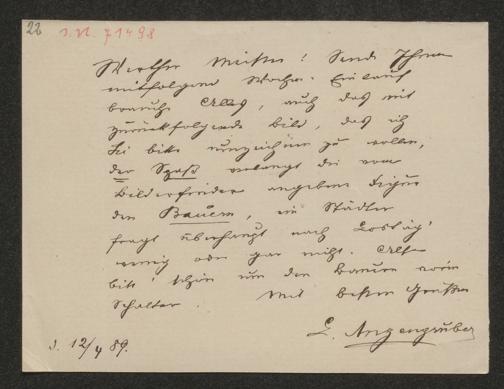 22
I. N. 71498
Werther Meister! Sende Ihnen
mitfolgend Wochen-Einlauf
brauche Alles, auch das mit
zurückfolgende Bild, das ich
Sie bitte umzeichnen zu wollen,
der Spaß verlangt die vom
Bilderfreunden angebene Figur
den Bauern, ein Städter
fragt überhaupt nach Lostag'
wenig oder gar nicht. Also
bitt' schön um den Bauern vorm
Schalter. Mit besten Grüßen
L. Anzengruber
d. 12/4 89.